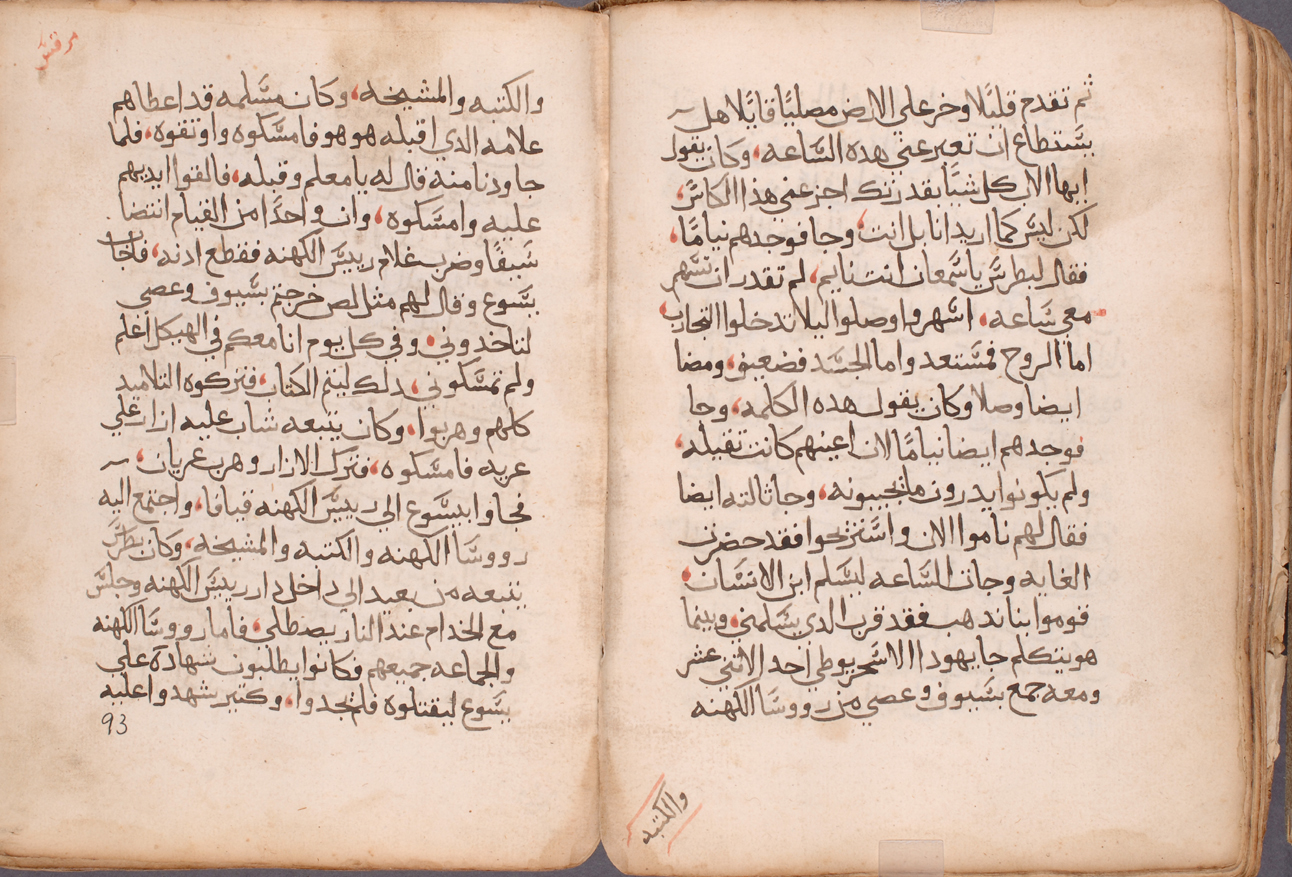 ثم تقدم قليلا وخر على الارض مصليا قايلا هل
يستطاع ان تعبر عني هده الساعه، وكان يقول
ايها الاب كل شيا بقدرتك اجز عني هذا الكاس،
لكن ليس كما اريد انا بل انت، وجا فوجدهم نياما،
فقال لبطرس يا سمعان انت نايم، لم تقدر ان تسهر
معي ساعه، اسهروا وصلوا ليلا تدخلوا التجارب
اما الروح فمستعد واما الجسد فضعيف، ومضا
ايضا وصلا وكان يقول هده الكلمه، وجا
فوجدهم ايضا نياما لان اعينهم كانت تقيله،
ولم يكونوا يدرون ما يجيبونه، وجا ثالته ايضا
فقال لهم ناموا الان واستريحوا فقد حضرت
الغايه وجات الساعه ليسلم ابن الانسان،
قوموا بنا ندهب فقد قرب الدي يسلمني، وبينما
هو يتكلم جا يهودا الاسخريوطي احد الاتني عشر
ومعه جمع بسيوف وعصي من رووسا الكهنه
والكتبه
مرقس
والكتبه والمشيخه، وكان مسلمه قد اعطاهم
علامه الدي اقبله هو هو فامسكوه واوتقوه، فلما
جا ودنا منه قال له يا معلم وقبله، فالقوا ايديهم
عليه وامسكوه، وان واحدا من القيام انتضا
سيفا وضرب غلام رييس الكهنه فقطع ادنه، فاجاب
يسوع وقال لهم مثل لص خرجتم بسيوف وعصي
لتاخدوني، وفي كل يوم انا معكم في الهيكل اعلم
ولم تمسكوني، دلك ليتم الكتاب، فتركوه التلاميد
كلهم وهربوا، وكان يتبعه شاب عليه ازار علي
عريه فامسكوه، فترك الازار وهرب عريان،
فجاوا بيسوع الى رييس الكهنه قيافا، واجتمع اليه
رووسا الكهنه والكتبه والمشيخه، وكان بطرس
يتبعه من بعيد الى داخل دار رييس الكهنه وجلس
مع الخدام عند النار يصطلي، فاما رووسا الكهنه
والجماعه جميعهم فكانوا يطلبون شهادة علي
يسوع ليقتلوه فلم يجدوا، وكتير شهدوا عليه
93